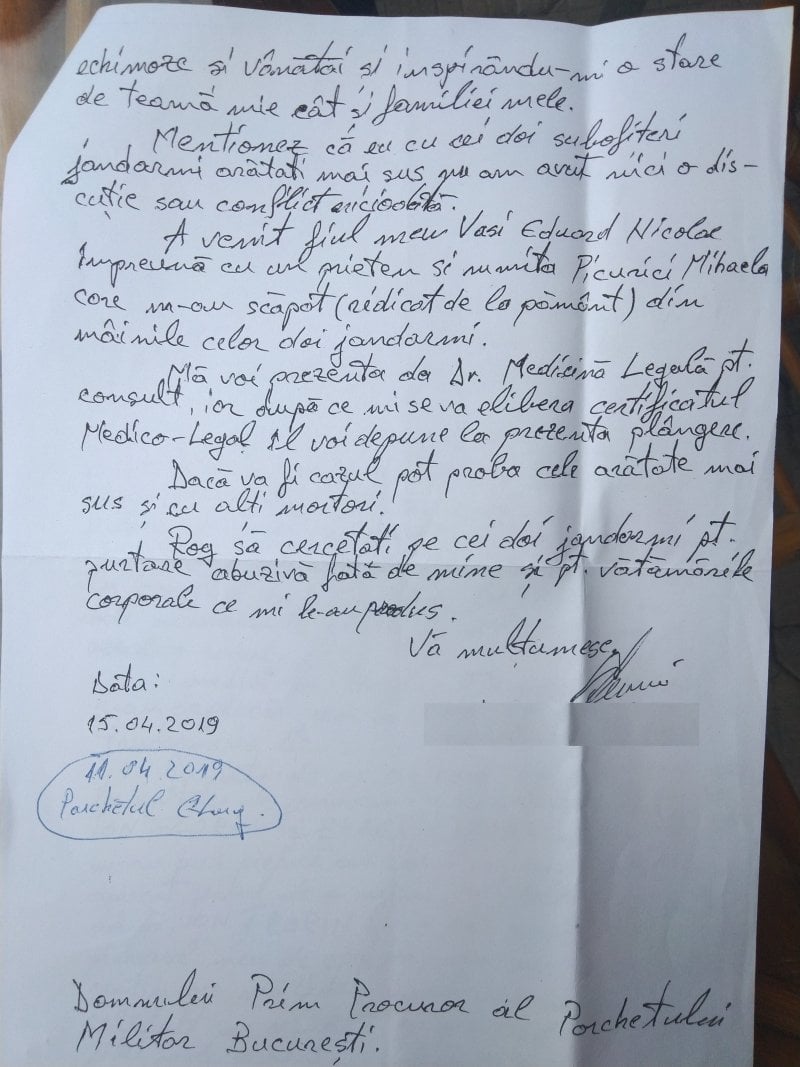 echimoze și vânătăi și inspirându-mi o stare
de teamă mie cât și familiei mele.
Mentionez că eu cu cei doi subofiteri
jandarmi arătati mai sus nu am avut nici o dis-
cuție sau conflict niciodată.
A venit fiul meu Vasi Eduard Nicolae
împreună cu un prieten si numita Picurici Mihaela
care m-au scăpat (rédicat de la pământ) din
mâinile celor doi jandarmi.
Mă voi prezenta da Dr. Medicină Legală pt.
consult, iar după ce mi se va elibera certificatul
Medico-Legal îl voi depune la prezenta plângere.
Dacă va fi cazul pot proba cele arătate mai
sus și cu alti martori.
Rog să cercetati pe cei doi jandarmi pt.
purtare abuzivă fată de mine și pt. vătămările
corporale ce mi le-au produs.
Vă multumesc,
Data:
15.04.2019
11.04 2019
Parchetul
Domnului Prim Procuror al Parchetului
Militar București.